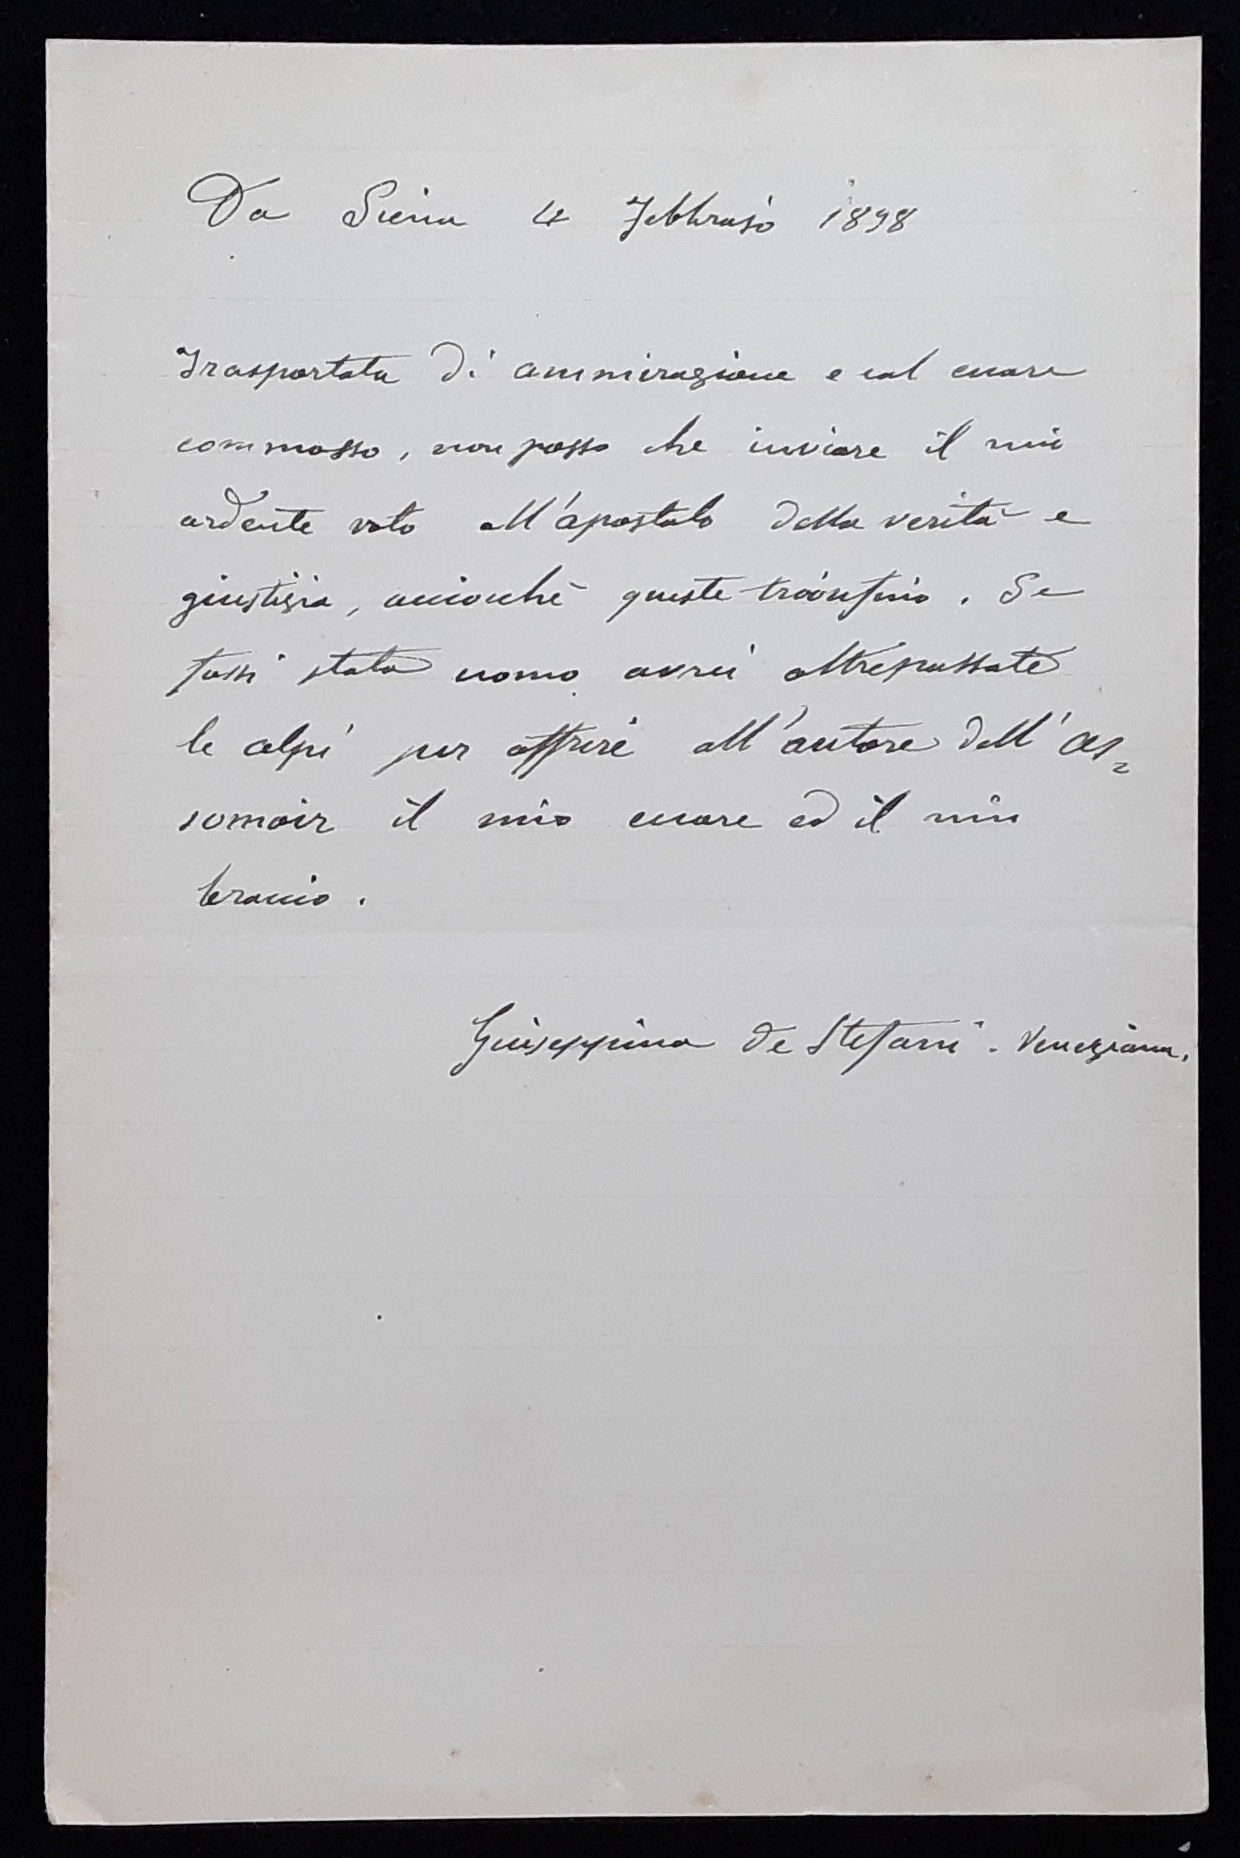 Da Siena 4 Febbrajo 1898
Trasportata di ammirazione e col cuore
commosso, non posso che inviare il mio
ardente voto all'apostolo della verità e
giustizia, acciocchè queste trionfino. Se
fossi stato uomo avrei oltrepassate
le alpi per offrire all'autore dell'As=
somoir il mio cuore ed il mio
braccio.
Giuseppina de Stefani - Veneziana.